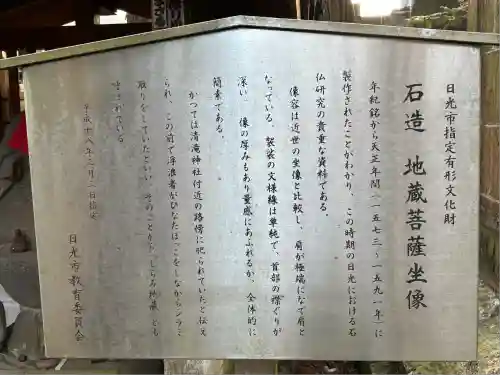 日光市指定有形文化財
石造 地蔵菩薩坐像
年紀銘から天正年間(一五七三〜一五九一年)に
製作されたことがわかり、この時期の日光における石
仏研究の貴重な資料である。
像容は近世の坐像と比較し、肩が極端になで肩と
なっている。袈裟の文様線は単純で、首部の襟ぐりが
深い。像の厚みもあり量感にあふれるが、全体的に
簡素である。
かつては清滝神社付近の路傍に祀られていたと伝え
られ、この前で浮浪者がひなたぼっこをしながらシラミ
取りをしていたといい、そのことからしらみ地蔵とも
呼ばれている。
平成十八年三月二日指定
日光市教育委員会